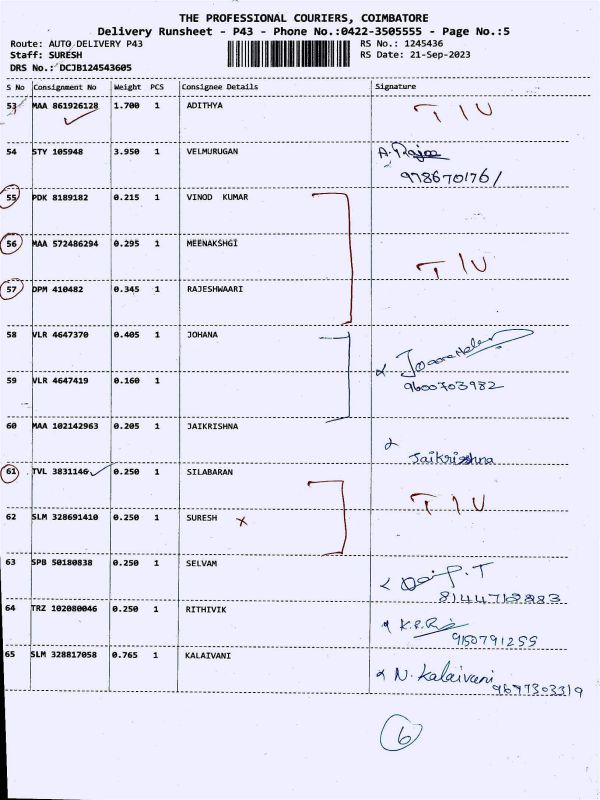 THE PROFESSIONAL COURIERS, COIMBATORE
Delivery Runsheet - P43 - Phone No.:0422-3505555 - Page No.:5
Route: AUTO DELIVERY P43 RS No.: 1245436
Staff: SURESH RS Date: 21-Sep-2023
DRS No.: DCJB124543605
S No Consignment No Weight PCS Consignee Details Signature
53 MAA 861926128 1.700 1 ADITHYA T I U
54 STY 105948 3.950 1 VELMURUGAN A. Rajaa
9786701761
55 PDK 8189182 0.215 1 VINOD KUMAR
56 MAA 572486294 0.295 1 MEENAKSHGI T I U
57 DPM 410482 0.345 1 RAJESHWAARI
58 VLR 4647370 0.405 1 JOHANA
59 VLR 4647419 0.160 1 9600703982
60 MAA 102142963 0.205 1 JAIKRISHNA Jaikrishna
61 TVL 3831146 0.250 1 SILABARAN T I U
62 SLM 328691410 0.250 1 SURESH x
63 SPB 50180838 0.250 1 SELVAM
64 TRZ 102080046 0.250 1 RITHIVIK
9150791255
65 SLM 328817058 0.765 1 KALAIVANI N. Kalaivani
9697303319
6